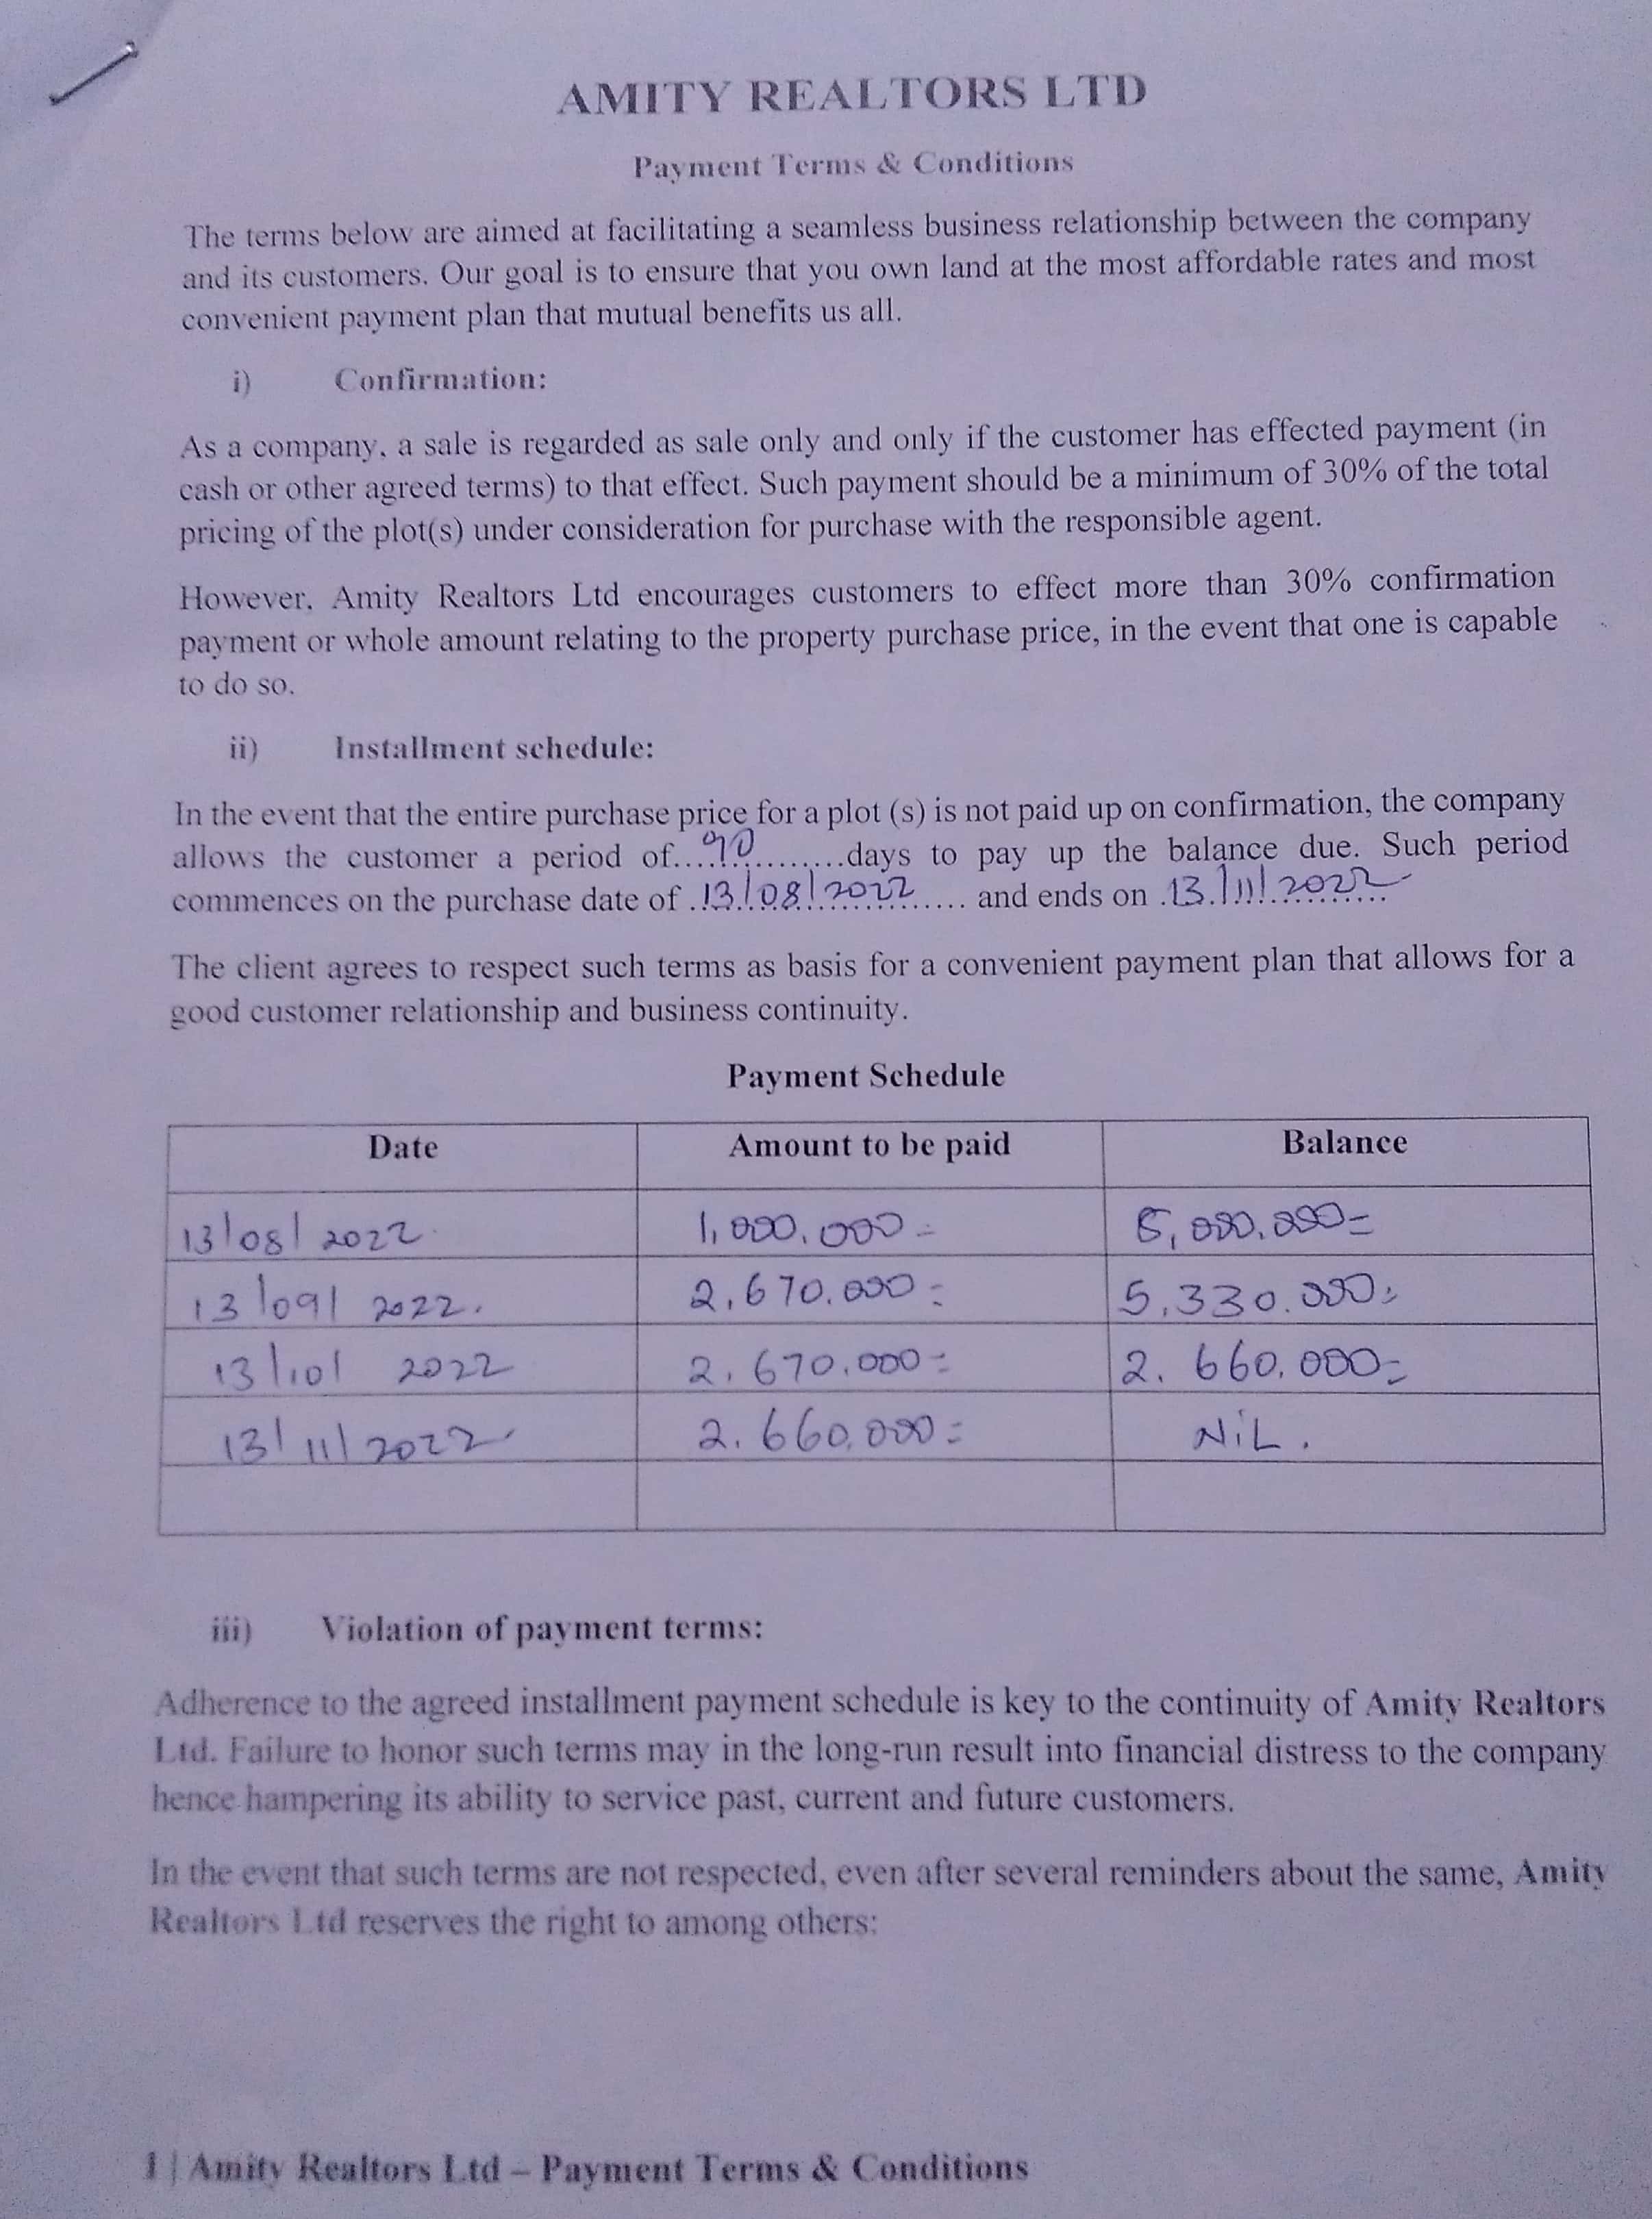 AMITY REALTORS LTD
Payment Terms & Conditions
The terms below are aimed at facilitating a seamless business relationship between the company
and its customers. Our goal is to ensure that you own land at the most affordable rates and most
convenient payment plan that mutual benefits us all.
i) Confirmation:
As a company, a sale is regarded as sale only and only if the customer has effected payment (in
cash or other agreed terms) to that effect. Such payment should be a minimum of 30% of the total
pricing of the plot(s) under consideration for purchase with the responsible agent.
However, Amity Realtors Ltd encourages customers to effect more than 30% confirmation
payment or whole amount relating to the property purchase price, in the event that one is capable
to do so.
ii) Installment schedule:
In the event that the entire purchase price for a plot (s) is not paid up on confirmation, the company
allows the customer a period of....90.........days to pay up the balance due. Such period
commences on the purchase date of .13/08/2022.... and ends on .13/11/2022
The client agrees to respect such terms as basis for a convenient payment plan that allows for a
good customer relationship and business continuity.
Payment Schedule
Date Amount to be paid Balance
13/08/2022 1,000,000= 8,000,000=
13/09/2022. 2,670,000= 5,330.000=
13/10/2022 2,670,000= 2,660,000=
13/11/2022 2,660,000= NIL.
iii) Violation of payment terms:
Adherence to the agreed installment payment schedule is key to the continuity of Amity Realtors
Ltd. Failure to honor such terms may in the long-run result into financial distress to the company
hence hampering its ability to service past, current and future customers.
In the event that such terms are not respected, even after several reminders about the same, Amity
Realtors Ltd reserves the right to among others:
1 | Amity Realtors Ltd – Payment Terms & Conditions